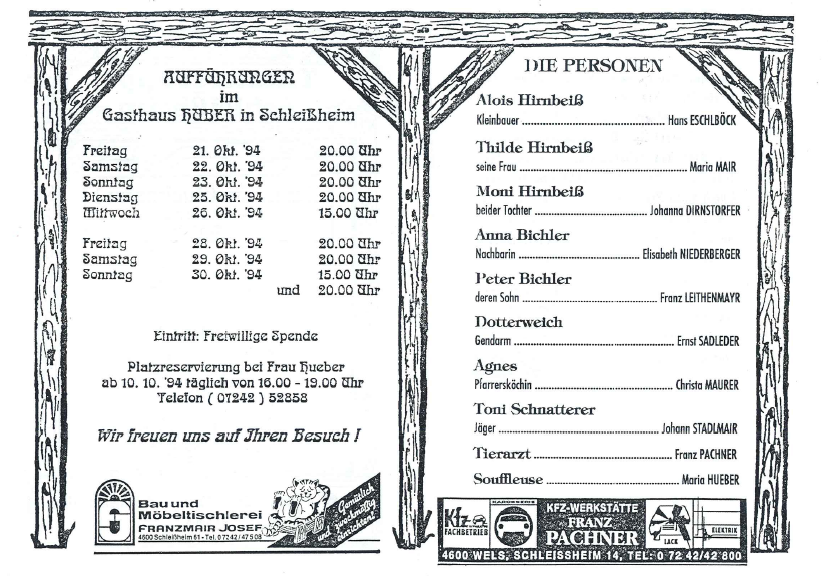 AUFFÜHRUNGEN
im
Gasthaus HUBER in Schleißheim
Freitag 21. Okt. '94 20.00 Uhr
Samstag 22. Okt. '94 20.00 Uhr
Sonntag 23. Okt. '94 20.00 Uhr
Dienstag 25. Okt. '94 20.00 Uhr
Mittwoch 26. Okt. '94 15.00 Uhr
Freitag 28. Okt. '94 20.00 Uhr
Samstag 29. Okt. '94 20.00 Uhr
Sonntag 30. Okt. '94 15.00 Uhr
und 20.00 Uhr
Eintritt: Freiwillige Spende
Platzreservierung bei Frau Hueber
ab 10. 10. '94 täglich von 16.00 - 19.00 Uhr
Telefon ( 07242 ) 52858
Wir freuen uns auf Ihren Besuch !
Bau und
Möbeltischlerei
FRANZMAIR JOSEF
4600 Schleißheim 61 - Tel. 0 72 42 / 475 08
Gemütlich
und zweckmäßig
einrichten!
DIE PERSONEN
Alois Hirnbeiß
Kleinbauer ........ Hans ESCHLBÖCK
Thilde Hirnbeiß
seine Frau ........ Maria MAIR
Moni Hirnbeiß
beider Tochter ........ Johanna DIRNSTORFER
Anna Bichler
Nachbarin ........ Elisabeth NIEDERBERGER
Peter Bichler
deren Sohn ........ Franz LEITHENMAYR
Dotterweich
Gendarm ........ Ernst SADLEDER
Agnes
Pfarrersköchin ........ Christa MAURER
Toni Schnatterer
Jäger ........ Johann STADLMAIR
Tierarzt ........ Franz PACHNER
Souffleuse ........ Maria HUEBER
Kfz
FACHBETRIEB
KAROSSERIE
KFZ-WERKSTÄTTE
FRANZ
PACHNER
LACK
ELEKTRIK
4600 WELS, SCHLEISSHEIM 14, TEL: 0 72 42/42 800